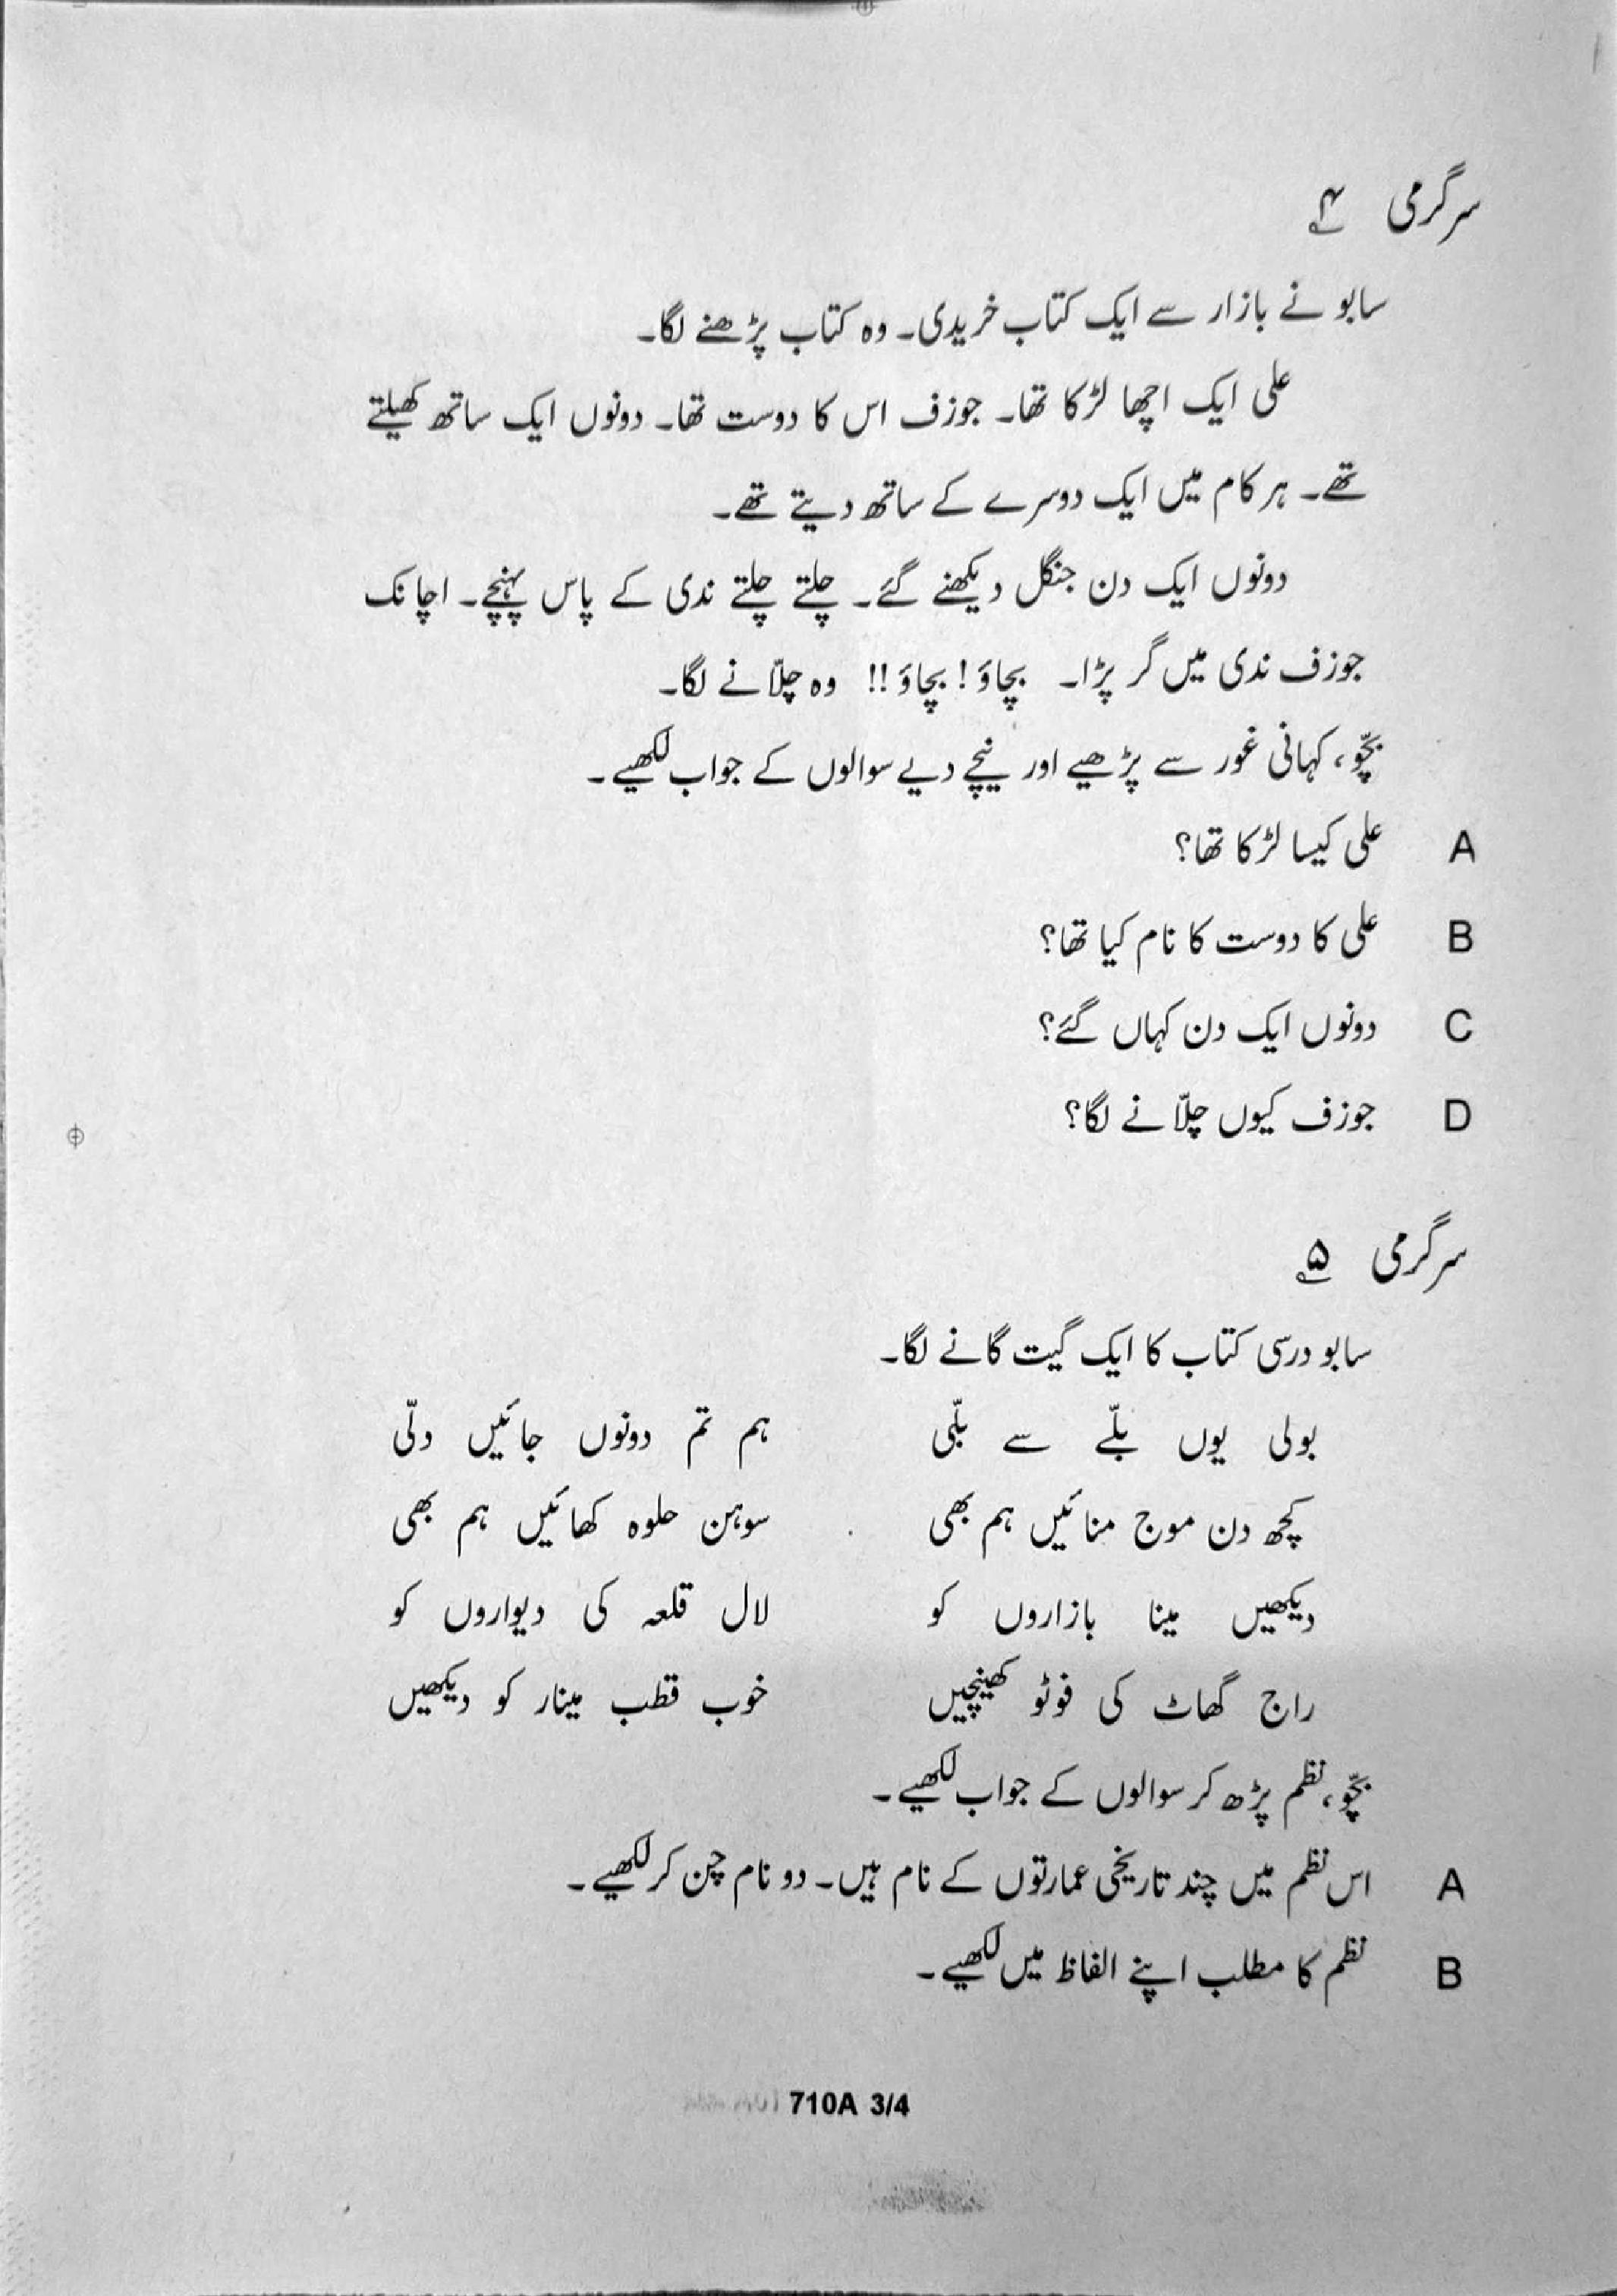 سرگرمی ۴
سابو نے بازار سے ایک کتاب خریدی۔ وہ کتاب پڑھنے لگا۔
علی ایک اچھا لڑکا تھا۔ جوزف اس کا دوست تھا۔ دونوں ایک ساتھ کھیلتے
تھے۔ ہر کام میں ایک دوسرے کے ساتھ دیتے تھے۔
دونوں ایک دن جنگل دیکھنے گئے۔ چلتے چلتے ندی کے پاس پہنچے۔ اچانک
جوزف ندی میں گر پڑا۔ بچاؤ! بچاؤ!! وہ چلّانے لگا۔
بچّو، کہانی غور سے پڑھیے اور نیچے دیے سوالوں کے جواب لکھیے۔
A علی کیسا لڑکا تھا؟
B علی کا دوست کا نام کیا تھا؟
C دونوں ایک دن کہاں گئے؟
D جوزف کیوں چلّانے لگا؟
سرگرمی ۵
سابو درسی کتاب کا ایک گیت گانے لگا۔
بولی یوں بلّے سے بلّی ہم تم دونوں جائیں دلّی
کچھ دن موج منائیں ہم بھی سوہن حلوہ کھائیں ہم بھی
دیکھیں مینا بازاروں کو لال قلعہ کی دیواروں کو
راج گھاٹ کی فوٹو کھینچیں خوب قطب مینار کو دیکھیں
بچّو، نظم پڑھ کر سوالوں کے جواب لکھیے۔
A اس نظم میں چند تاریخی عمارتوں کے نام ہیں۔ دو نام چن کر لکھیے۔
B نظم کا مطلب اپنے الفاظ میں لکھیے۔
710A 3/4